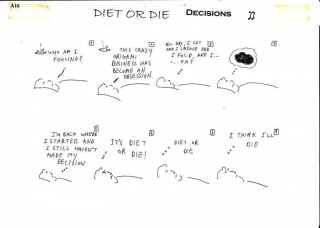 A16
DIET OR DIE
DECISIONS
WHO AM I
FOOLING?
THIS CRAZY
ORIGAMI
BUSINESS HAS
BECOME AN
OBSESSION.
ALL DAY, I CUT
AND I CREASE AND
I FOLD, AND I...
... EAT
I'M BACK WHERE
I STARTED. AND
I STILL HAVEN'T
MADE MY
DECISION
IT'S DIET
OR DIE!
DIET OR
DIE
I THINK I'LL
DIE